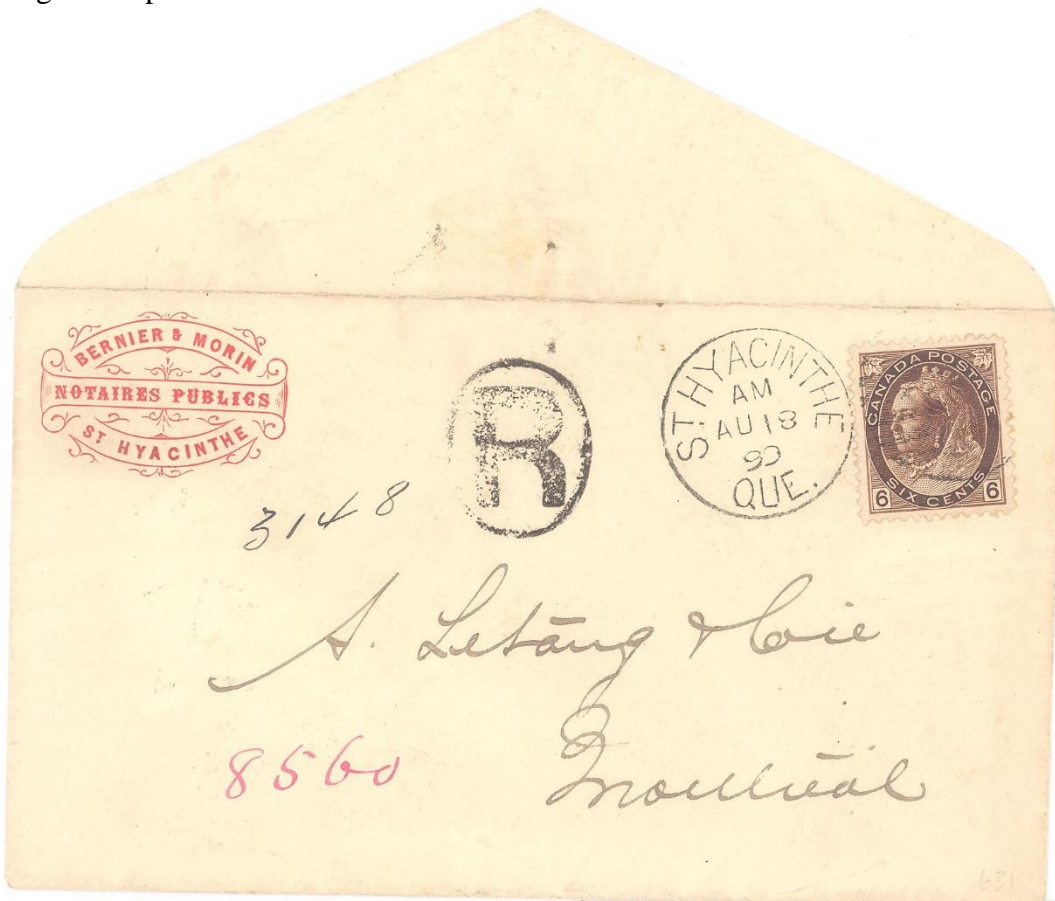 BERNIER & MORIN
NOTAIRES PUBLICS
ST HYACINTHE
R
ST HYACINTHE
AM
AU 18
99
QUE.
CANADA POSTAGE
6 SIX CENTS 6
3148
A. Letāng & Cie
8560
Montréal
631